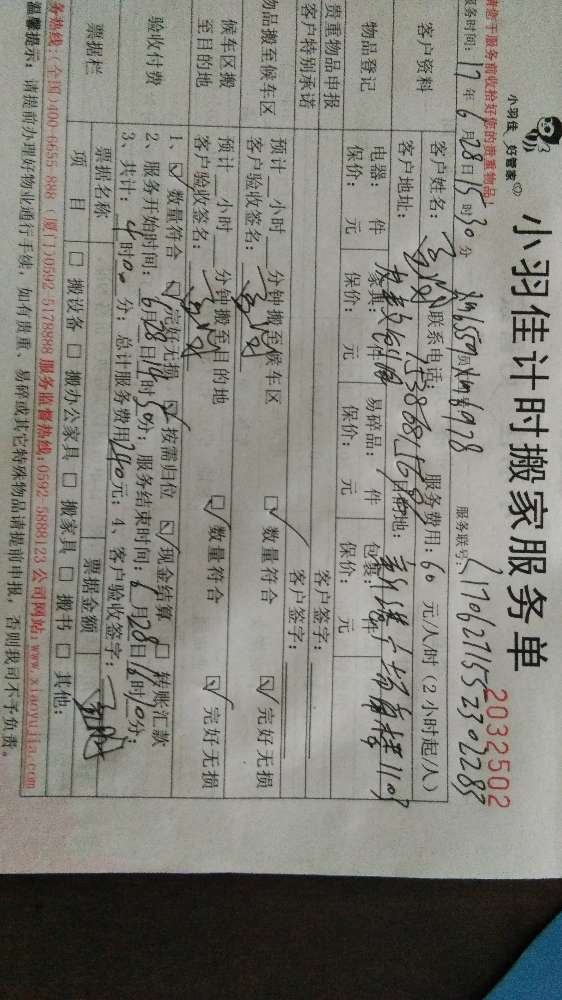 小羽佳 好管家
小羽佳计时搬家服务单
2032502
请您于服务前收拾好您的贵重物品!
服务时间: 17 年 6 月 28 日 15 时 30 分
服务联号:
客户资料
客户姓名: 联系电话: 服务费用: 60 元/人/时 (2小时起/人)
客户地址: 目的地:
物品登记
电器: 件 家具: 件 易碎品: 件 包裹: 件
保价: 元 保价: 元 保价: 元 保价: 元
贵重物品申报 客户签字:
客户特别承诺 客户签字:
物品搬至候车区
预计 小时 分钟搬至候车区 ☑ 数量符合 ☑ 完好无损
客户验收签名:
候车区搬至目的地
预计 小时 分钟搬至目的地 ☑ 数量符合 ☑ 完好无损
客户验收签名:
验收付费
1、☑ 数量符合 ☑ 完好无损 ☑ 按需归位 ☑ 现金结算 □ 转账汇款
2、服务开始时间: 6月28日 时 分; 服务结束时间: 6月28日 时 分;
3、共计: 4时00分; 总计服务费用240元; 4、客户验收签字:
票据栏
票据名称 票据金额
项目 □ 搬设备 □ 搬办公家具 □ 搬家具 □ 搬书 □ 其他:
务热线:(全国)400-6655-888 (厦门)0592-5178888 服务监督热线:0592-5888123 公司网站:www.xiaoyujia.com
温馨提示: 请提前办理好物业通行手续, 如有贵重、易碎或其它特殊物品请提前申报, 否则我司不予负责。